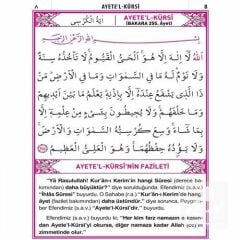 ٨ AYETE'L-KÜRSÎ 8
اٰيَةُ الْكُرْسِى AYETE'L-KÜRSÎ
(BAKARA 255. Âyet)
بِسْمِ اللّٰهِ الرَّحْمٰنِ الرَّحِيمِ
اَللّٰهُ لَٓا اِلٰهَ اِلَّا هُوَۚ اَلْحَىُّ الْقَيُّومُۚ لَا تَاْخُذُهُ سِنَةٌ
وَلَا نَوْمٌۜ لَهُ مَا فِى السَّمٰوَاتِ وَمَا فِى الْاَرْضِۜ مَنْ
ذَا الَّذِى يَشْفَعُ عِنْدَهُٓ اِلَّا بِاِذْنِهٖۜ يَعْلَمُ مَا بَيْنَ اَيْدِيهِمْ
وَمَا خَلْفَهُمْۚ وَلَا يُحِيطُونَ بِشَىْءٍ مِنْ عِلْمِهٖٓ اِلَّا
بِمَا شَٓاءَۚ وَسِعَ كُرْسِيُّهُ السَّمٰوَاتِ وَالْاَرْضَۚ
وَلَا يَؤُدُهُ حِفْظُهُمَاۚ وَهُوَ الْعَلِىُّ الْعَظِيمُ
AYETE'L-KÜRSÎ'NİN FAZİLETİ
"Yâ Rasulullah! Kur'ân-ı Kerim'in hangi Sûresi (derece bakımından) daha büyüktür?" diye sorulduğunda, Efendimiz (s.a.v.)
"İhlâs Sûresi" buyurdu. O Sahabe (r.a.) "Kur'ân-ı Kerim'de hangi
âyet (fazilet bakımından) daha üstündür." diye sorunca, Peygamber
Efendimiz (s.a.v.) "Ayete'l-Kürsî'dir." buyurdu.
Efendimiz (s.a.v.) buyurdu ki, "Her kim farz namazın
Ayete'l-Kürsî'yi okursa, diğer namaza kadar Allah
zimmetinde olur."